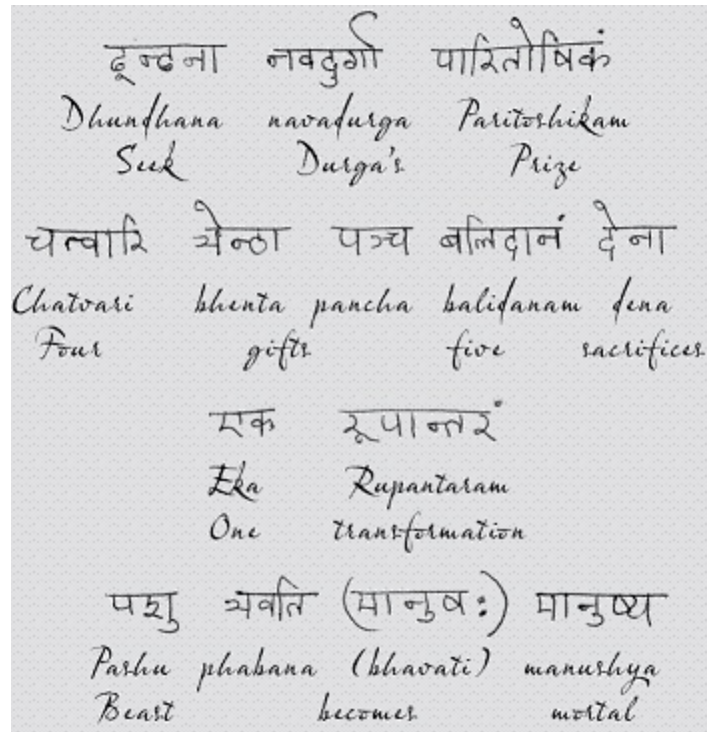 ढून्ढना नवदुर्गा पारितोषिकं
Dhundhana navadurga Paritoshikam
Seek Durga's Prize
चत्वारि भेन्ठा पञ्च बलिदानं देना
Chatvari bhenta pancha balidanam dena
Four gifts five sacrifices
एक रूपान्तरं
Eka Rupantaram
One transformation
पशु भवति (मानुष:) मानुष्य
Pashu phabana (bhavati) manushya
Beast becomes mortal